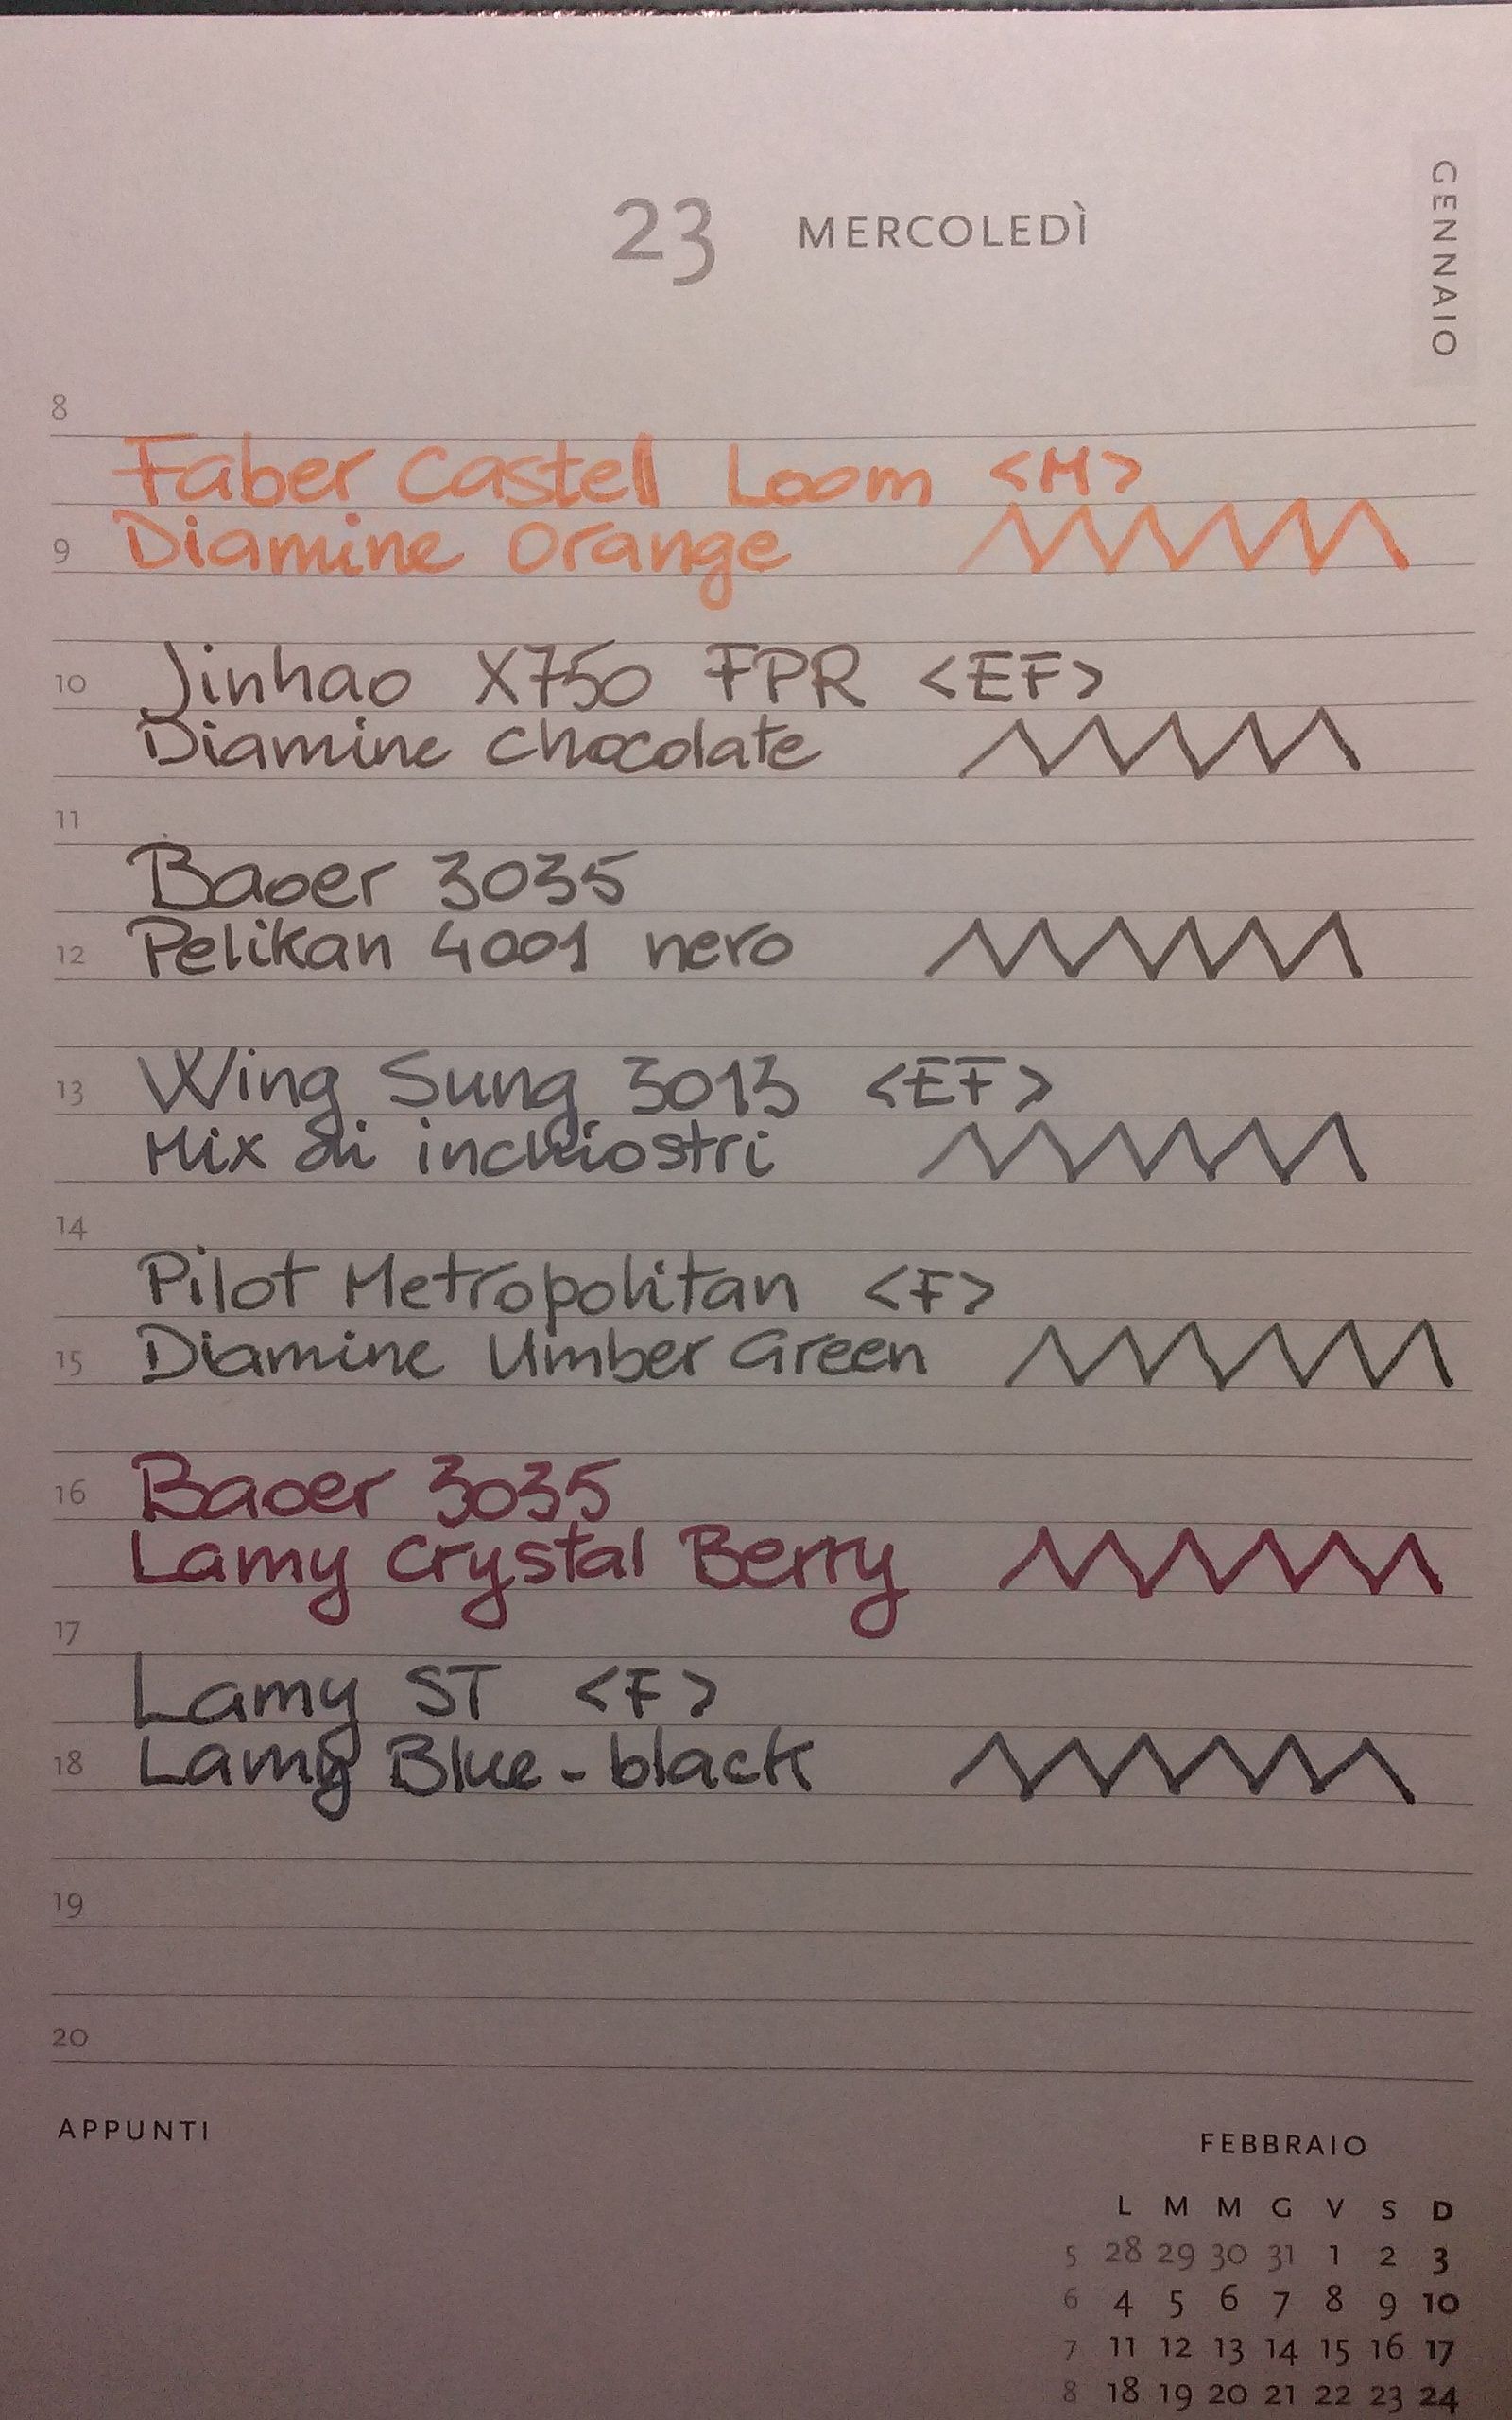 23 MERCOLEDÌ
GENNAIO
8
Faber Castell Loom <M>
9 Diamine Orange
10 Jinhao X750 FPR <EF>
Diamine Chocolate
11
Baoer 3035
12 Pelikan 4001 nero
13 Wing Sung 3013 <EF>
Mix di inchiostri
14
Pilot Metropolitan <F>
15 Diamine Umber Green
16 Baoer 3035
Lamy Crystal Berry
17
Lamy ST <F>
18 Lamy Blue-black
19
20
APPUNTI
FEBBRAIO
L M M G V S D
5 28 29 30 31 1 2 3
6 4 5 6 7 8 9 10
7 11 12 13 14 15 16 17
8 18 19 20 21 22 23 24